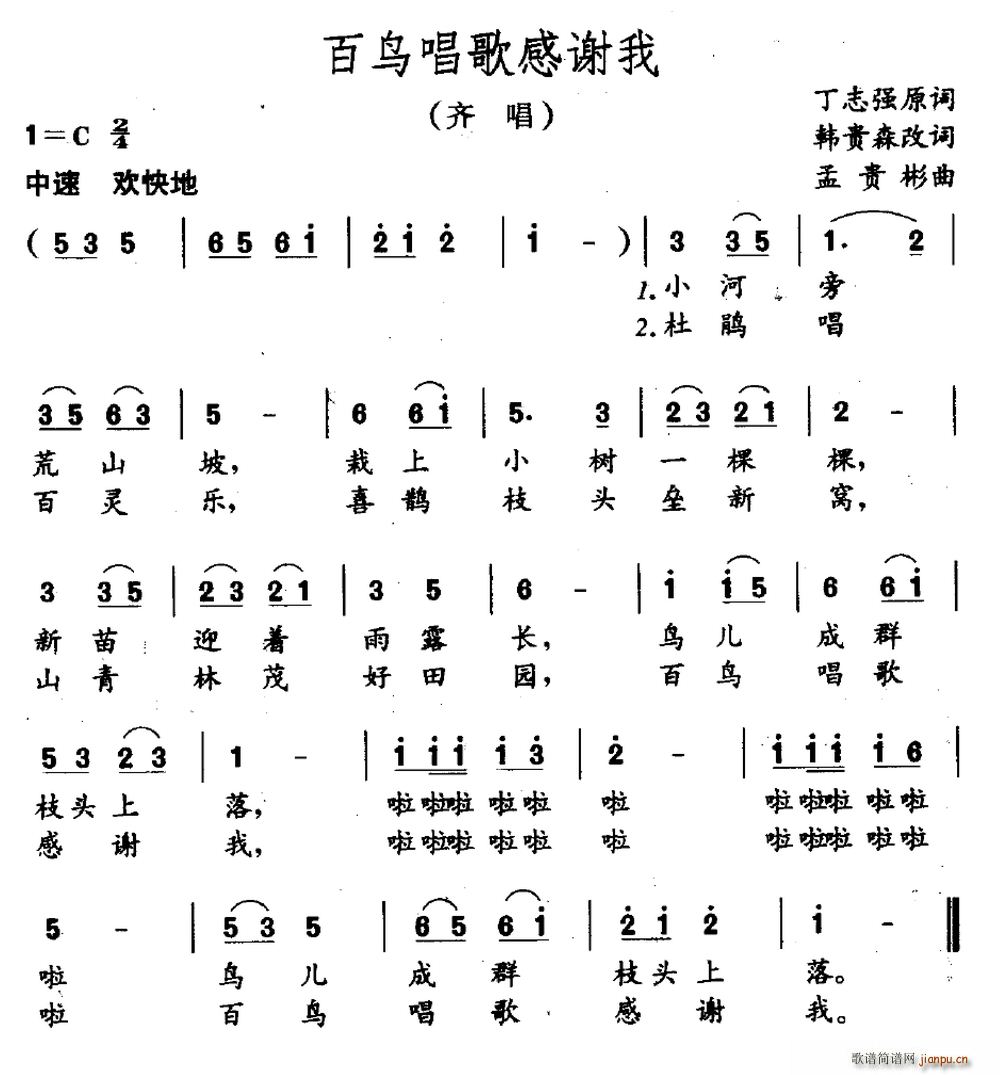 百鸟唱歌感谢我
（齐 唱）
丁志强原词
1=C 2/4
韩贵森改词
中速 欢快地
孟贵彬曲
( 5 3 5 | 6 5 6 i | 2̇ i 2̇ | i - ) | 3 3 5 | 1. 2 |
1.小 河 旁
2.杜 鹃 唱
3 5 6 3 | 5 - | 6 6 i | 5. 3 | 2 3 2 1 | 2 - |
荒 山 坡， 栽 上 小 树 一 棵 棵，
百 灵 乐， 喜 鹊 枝 头 垒 新 窝，
3 3 5 | 2 3 2 1 | 3 5 | 6 - | i i 5 | 6 6 i |
新 苗 迎 着 雨 露 长， 鸟 儿 成 群
山 青 林 茂 好 田 园， 百 鸟 唱 歌
5 3 2 3 | 1 - | i i i i 3̇ | 2̇ - | i i i i 6 |
枝 头 上 落， 啦 啦啦 啦 啦 啦 啦 啦啦 啦 啦
感 谢 我， 啦 啦啦 啦 啦 啦 啦 啦啦 啦 啦
5 - | 5 3 5 | 6 5 6 i | 2̇ i 2̇ | i - ‖
啦 鸟 儿 成 群 枝 头 上 落。
啦 百 鸟 唱 歌 感 谢 我。
歌谱简谱网 jianpu.cn